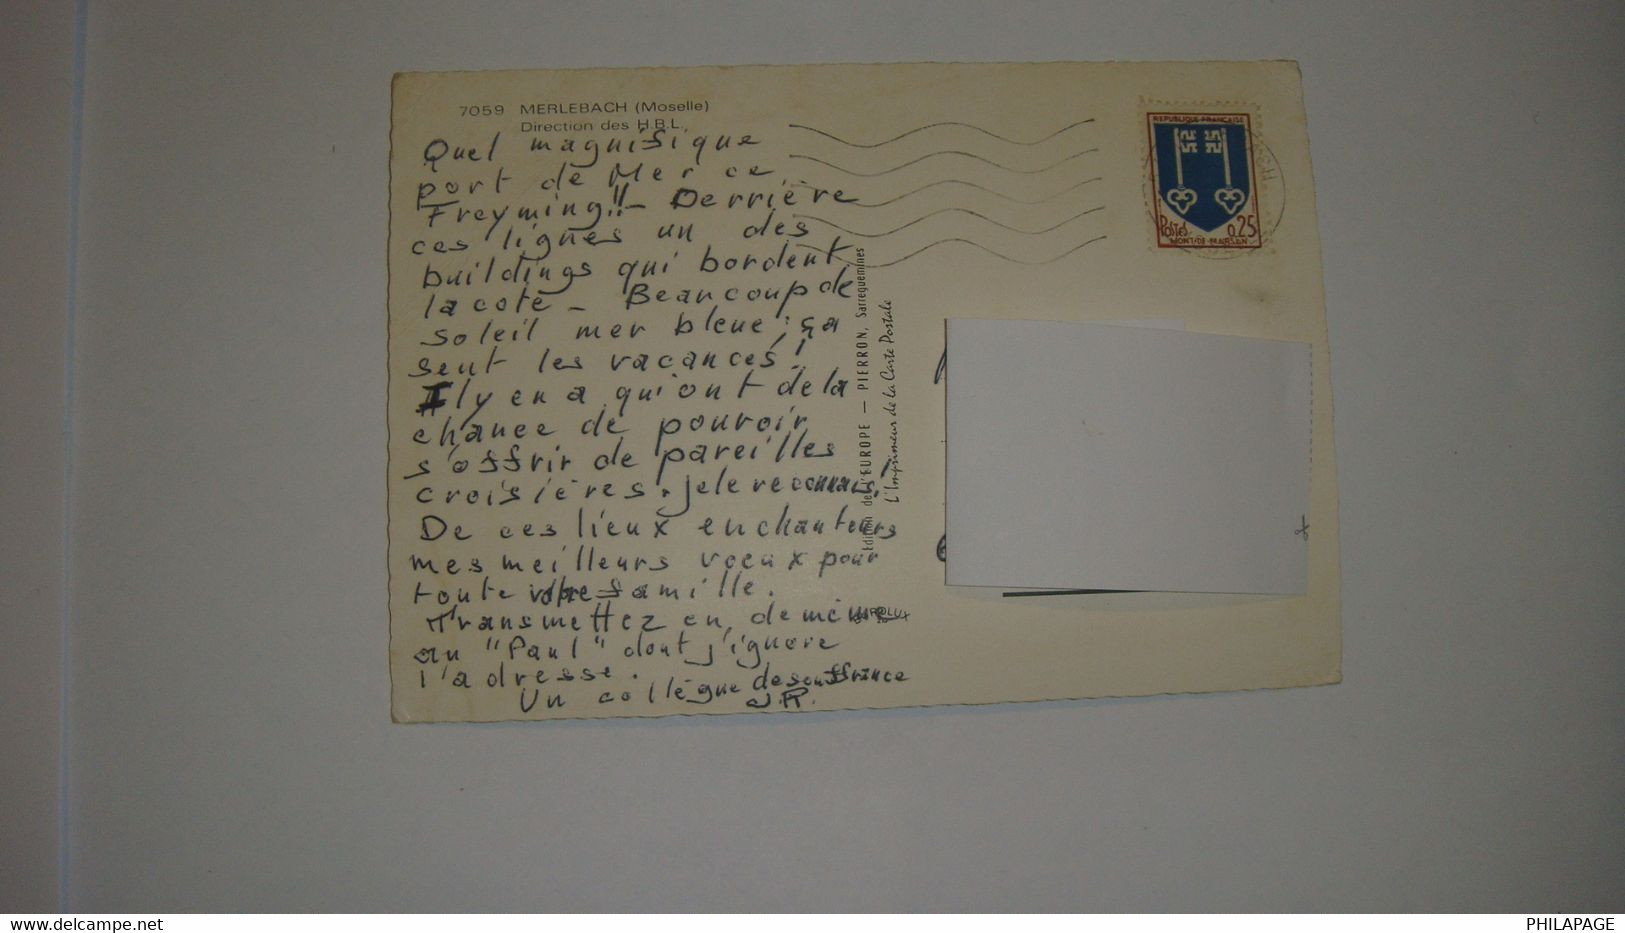 7059 MERLEBACH (Moselle)
Direction des H.B.L.
Quel magnifique
port de Mer ce
Freyming!! - Derrière
ces lignes un des
buildings qui bordent
la cote - Beaucoup de
soleil mer bleue; ça
sent les vacances!
Il y en a qui ont de la
chance de pouvoir
s'offrir de pareilles
croisières. je le reconnais!
De ces lieux enchanteurs
mes meilleurs voeux pour
toute votre famille.
Transmettez en, de même
au "Paul" dont j'ignore
l'adresse.
Un collègue de souffrance
J.R.
Edition de l'EUROPE — PIERRON, Sarreguemines
L'Imprimeur de la Carte Postale
REPUBLIQUE FRANÇAISE
POSTES 0,25
MONT-DE-MARSAN
www.delcampe.net
PHILAPAGE